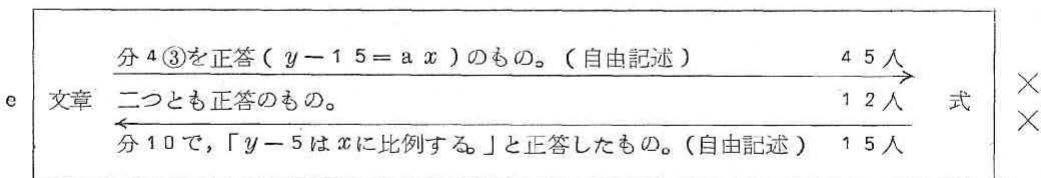 分4③を正答(y-15=ax)のもの。(自由記述) 45人
e 文章 二つとも正答のもの。 12人 式 ××
分10で,「y-5はxに比例する。」と正答したもの。(自由記述) 15人